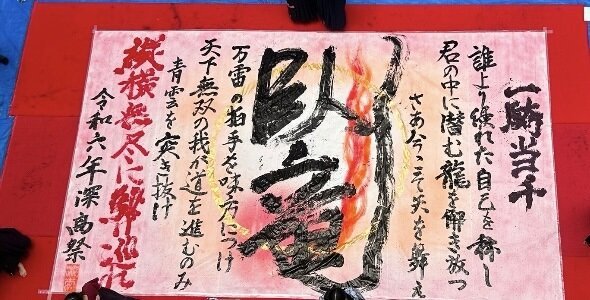 一騎当千
誰より優れた自己を称し
君の中に潜む龍を解き放つ
さあ今こそ天を舞え
臥竜
万雷の拍手を味方につけ
天下無双の我が道を進むのみ
青雲を突き抜け
縦横無尽に舞巡れ
令和六年深高祭